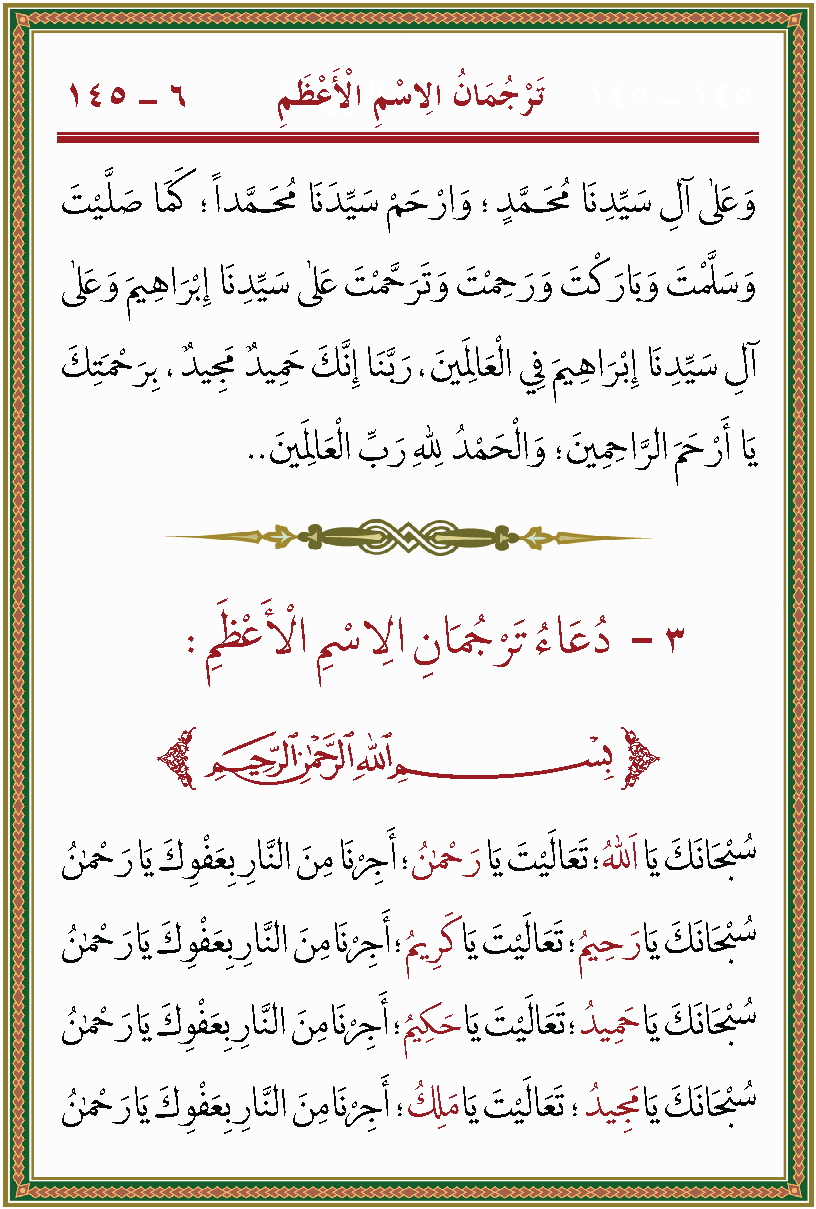 تَرْجُمَانُ الِاسْمِ الْأَعْظَمِ ٦ – ١٤٥
وَعَلٰى آلِ سَيِّدِنَا مُحَمَّدٍ ؛ وَارْحَمْ سَيِّدَنَا مُحَمَّداً ؛ كَمَا صَلَّيْتَ
وَسَلَّمْتَ وَبَارَكْتَ وَرَحِمْتَ وَتَرَحَّمْتَ عَلٰى سَيِّدِنَا إِبْرَاهِيمَ وَعَلٰى
آلِ سَيِّدِنَا إِبْرَاهِيمَ فِي الْعَالَمِينَ ، رَبَّنَا إِنَّكَ حَمِيدٌ مَجِيدٌ ، بِرَحْمَتِكَ
يَا أَرْحَمَ الرَّاحِمِينَ ؛ وَالْحَمْدُ لِلّٰهِ رَبِّ الْعَالَمِينَ..
٣ – دُعَاءُ تَرْجُمَانِ الِاسْمِ الْأَعْظَمِ :
بِسْمِ اللهِ الرَّحْمٰنِ الرَّحِيمِ
سُبْحَانَكَ يَا اَللّٰهُ ؛ تَعَالَيْتَ يَا رَحْمٰنُ ؛ أَجِرْنَا مِنَ النَّارِ بِعَفْوِكَ يَا رَحْمٰنُ
سُبْحَانَكَ يَا رَحِيمُ ؛ تَعَالَيْتَ يَا كَرِيمُ ؛ أَجِرْنَا مِنَ النَّارِ بِعَفْوِكَ يَا رَحْمٰنُ
سُبْحَانَكَ يَا حَمِيدُ ؛ تَعَالَيْتَ يَا حَكِيمُ ؛ أَجِرْنَا مِنَ النَّارِ بِعَفْوِكَ يَا رَحْمٰنُ
سُبْحَانَكَ يَا مَجِيدُ ؛ تَعَالَيْتَ يَا مَلِكُ ؛ أَجِرْنَا مِنَ النَّارِ بِعَفْوِكَ يَا رَحْمٰنُ